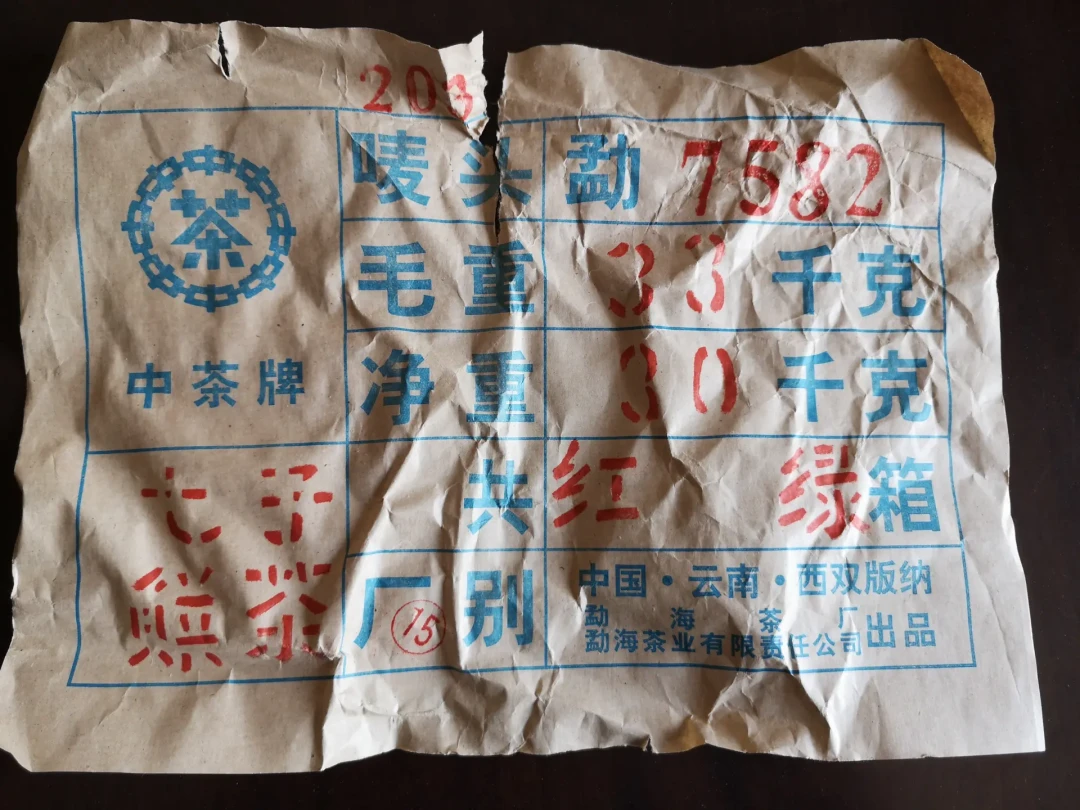 203
茶
中茶牌
唛头 勐 7582
毛重 33 千克
净重 30 千克
共 红 绿 箱
七子
餅茶
厂别 中国·云南·西双版纳
15
勐海茶厂
勐海茶业有限责任公司 出品